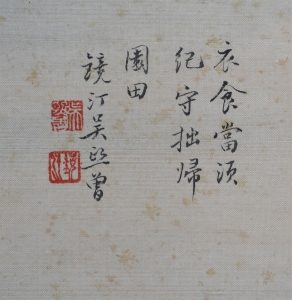 衣食當須
紀守拙歸
園田
鏡汀吳熙曾